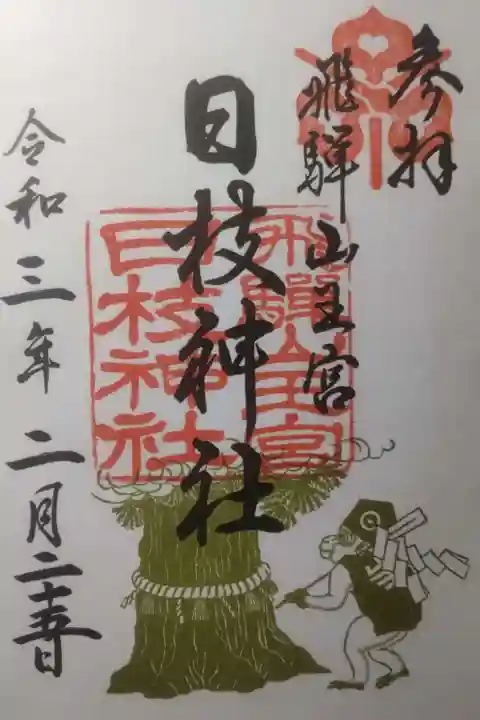 参拝
飛騨山王宮
日枝神社
飛騨山王宮
日枝神社
令和三年二月二十五日